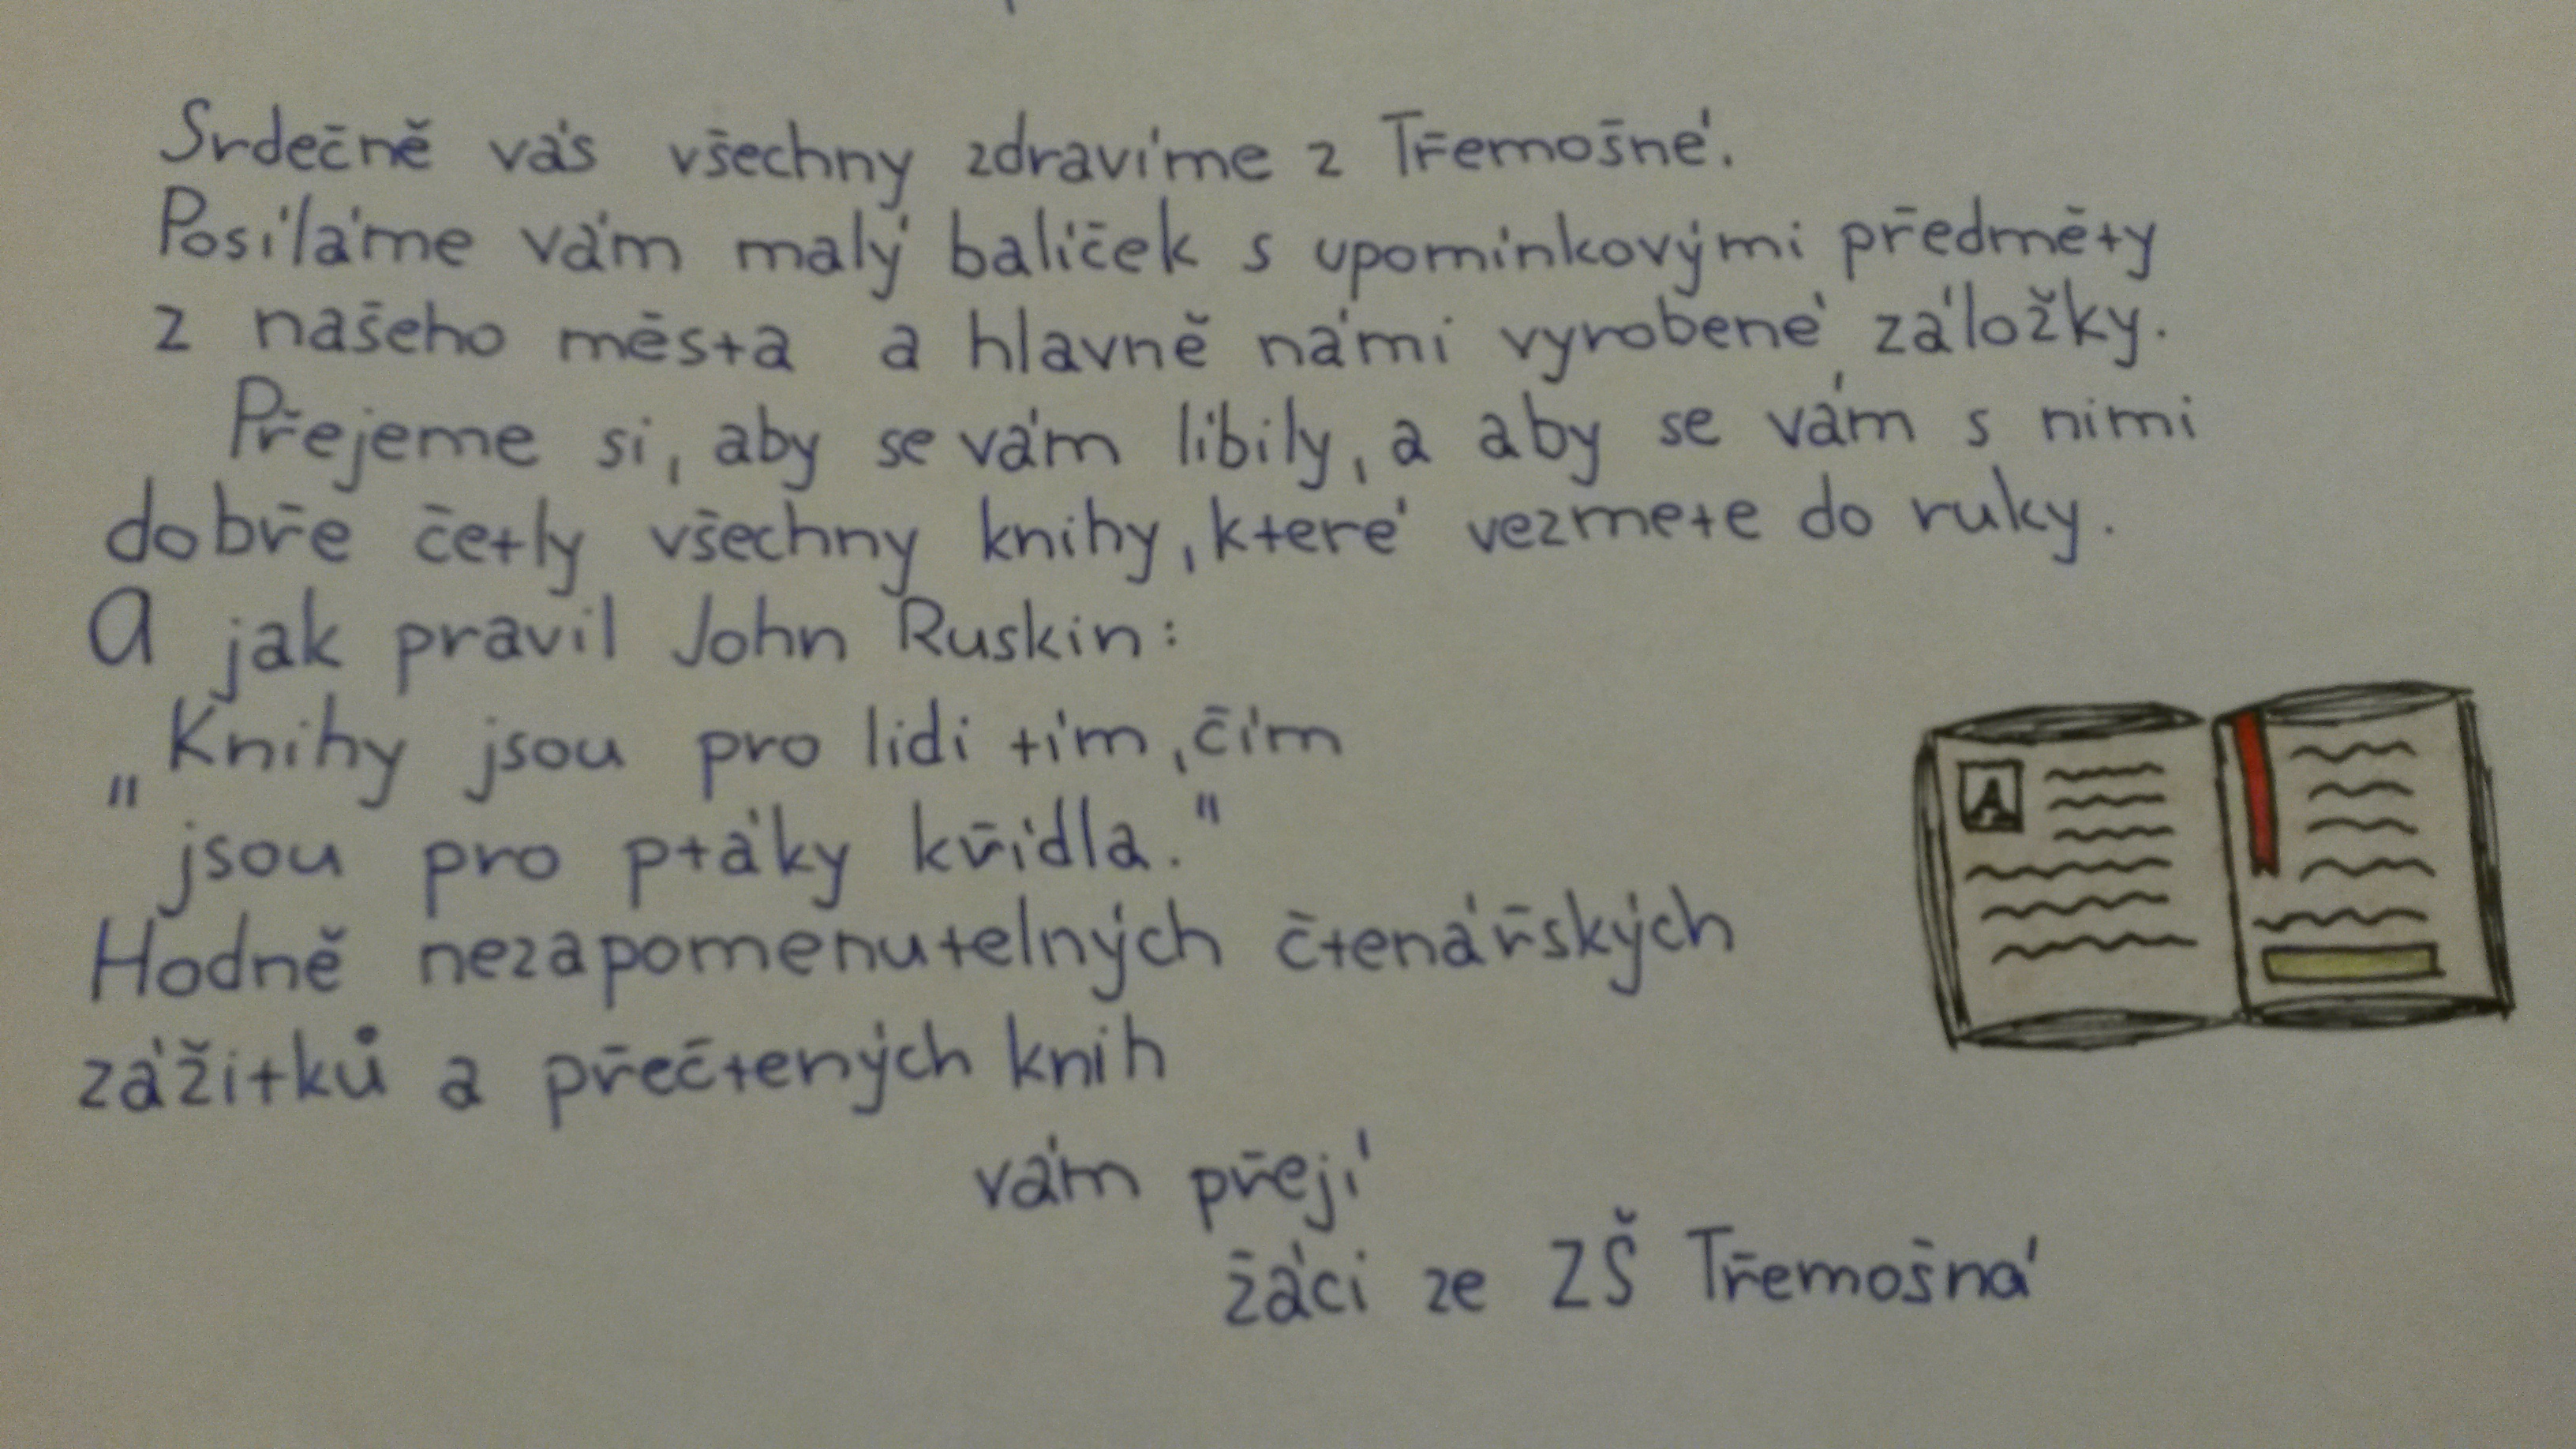 Srdečně vás všechny zdravíme z Třemošné.
Posíláme vám malý balíček s upomínkovými předměty
z našeho města a hlavně námi vyrobené záložky.
Přejeme si, aby se vám líbily, a aby se vám s nimi
dobře četly všechny knihy, které vezmete do ruky.
A jak pravil John Ruskin:
„Knihy jsou pro lidi tím, čím
jsou pro ptáky křídla."
Hodně nezapomenutelných čtenářských
zážitků a přečtených knih
vám přejí
žáci ze ZŠ Třemošná
A